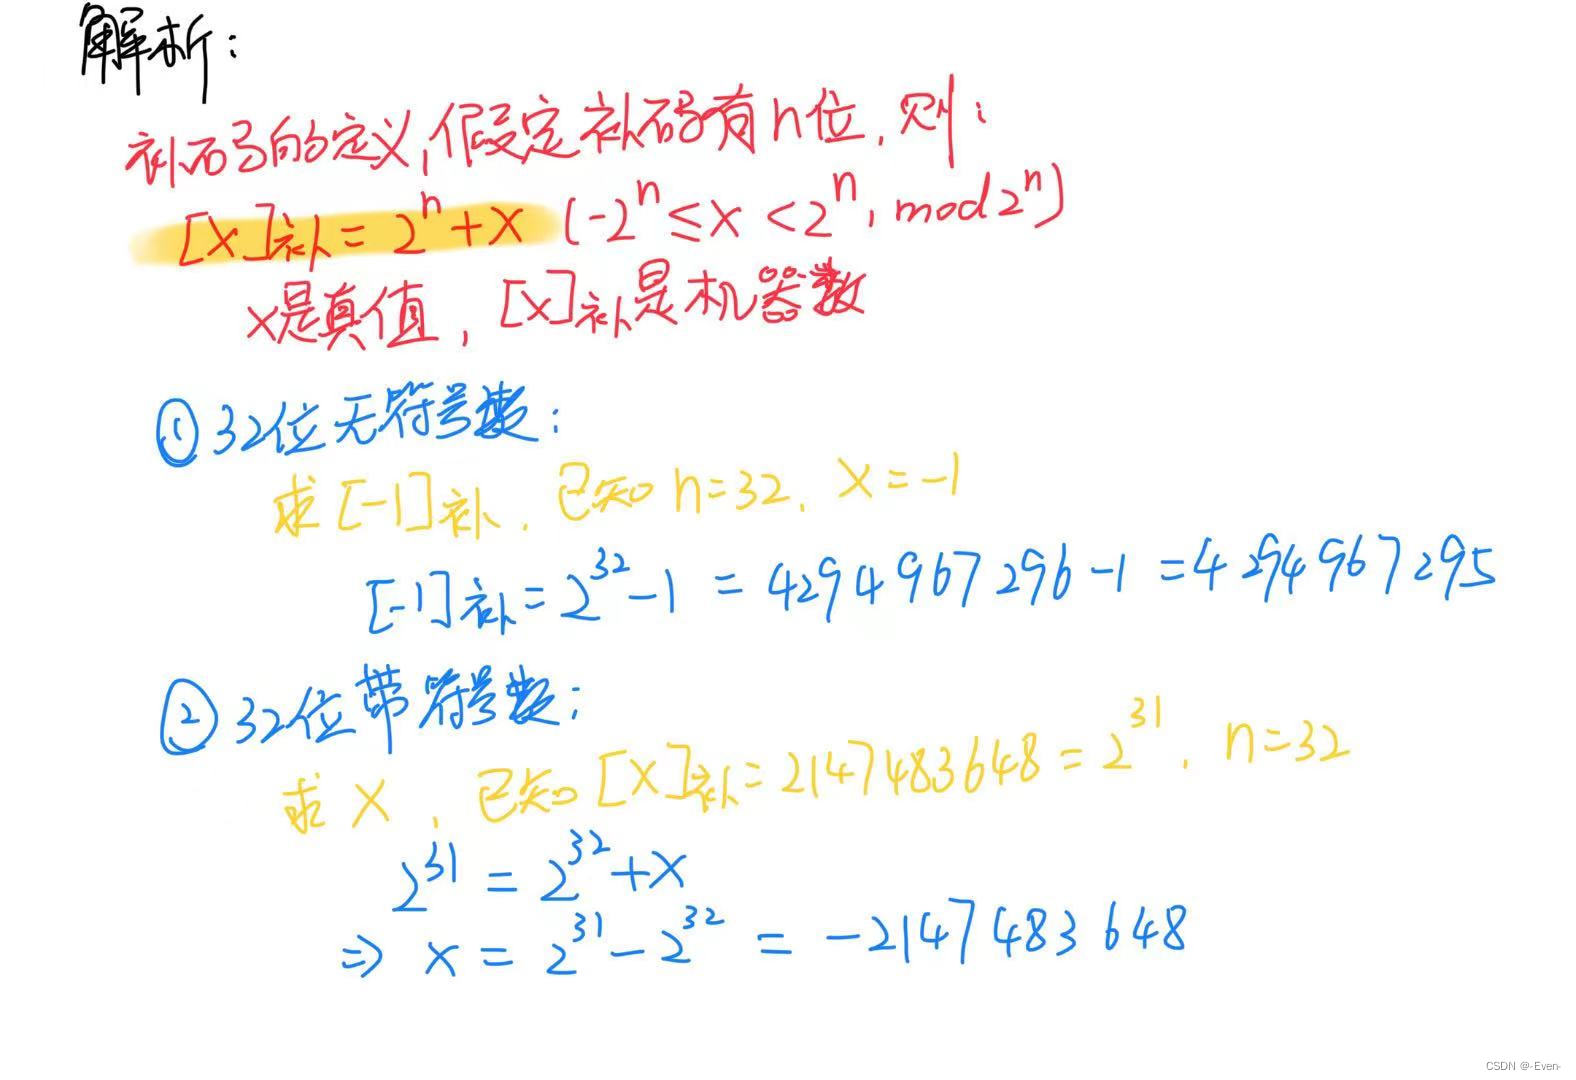 解析:
补码的定义,假定补码有n位,则:
[X]补=2^n+X (-2^n≤X<2^n, mod2^n)
X是真值,[X]补是机器数
①32位无符号数:
求[-1]补,已知n=32, X=-1
[-1]补=2^32-1=4294967296-1=4294967295
②32位带符号数:
求X,已知[X]补=2147483648=2^31, n=32
2^31=2^32+X
⇒ X=2^31-2^32=-2147483648
CSDN @-Even-